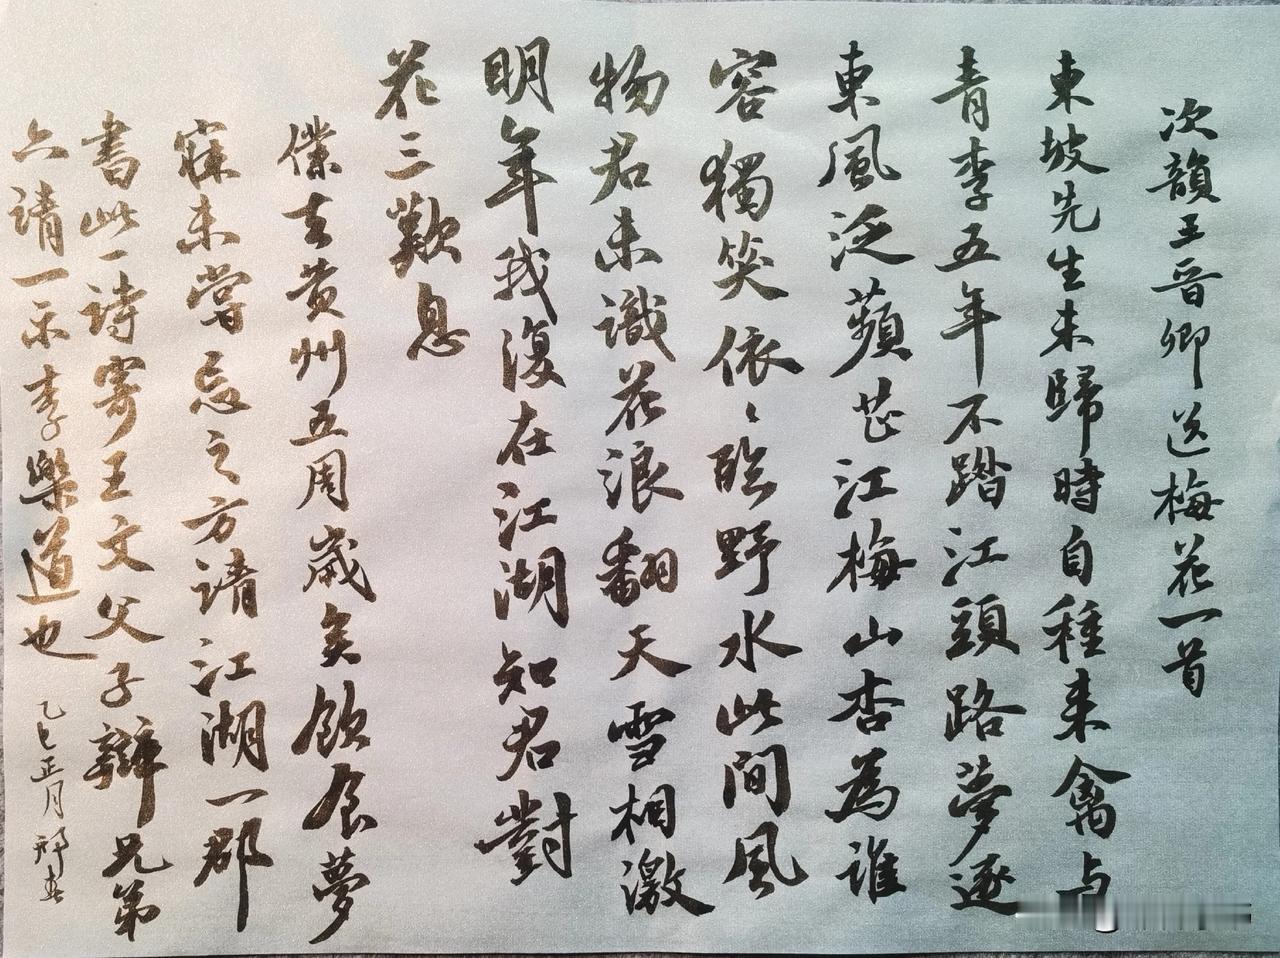 次韻王晋卿送梅花一首
東坡先生未歸時自種来禽与
青李五年不踏江頭路夢逐
東風泛蘋芷江梅山杏為誰
容獨笑依〻臨野水此間風
物君未識花浪翻天雪相激
明年我復在江湖知君對
花三歎息
僕去黄州五周歲矣飲食夢
寐未嘗忘之方請江湖一郡
書此一詩寄王文父子辯兄弟
六請一示李樂道也
乙巳正月